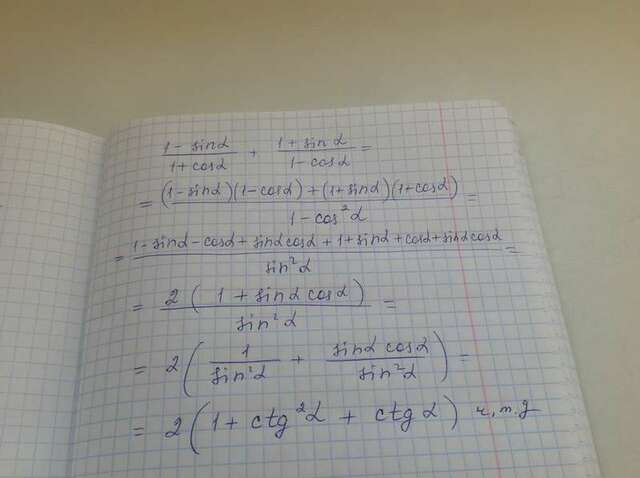 (1 - sin α)/(1 + cos α) + (1 + sin α)/(1 - cos α) =
= ((1 - sin α)(1 - cos α) + (1 + sin α)(1 + cos α))/(1 - cos² α) =
= (1 - sin α - cos α + sin α cos α + 1 + sin α + cos α + sin α cos α)/(sin² α) =
= (2(1 + sin α cos α))/(sin² α) =
= 2(1/(sin² α) + (sin α cos α)/(sin² α)) =
= 2(1 + ctg² α + ctg α) ч.т.д